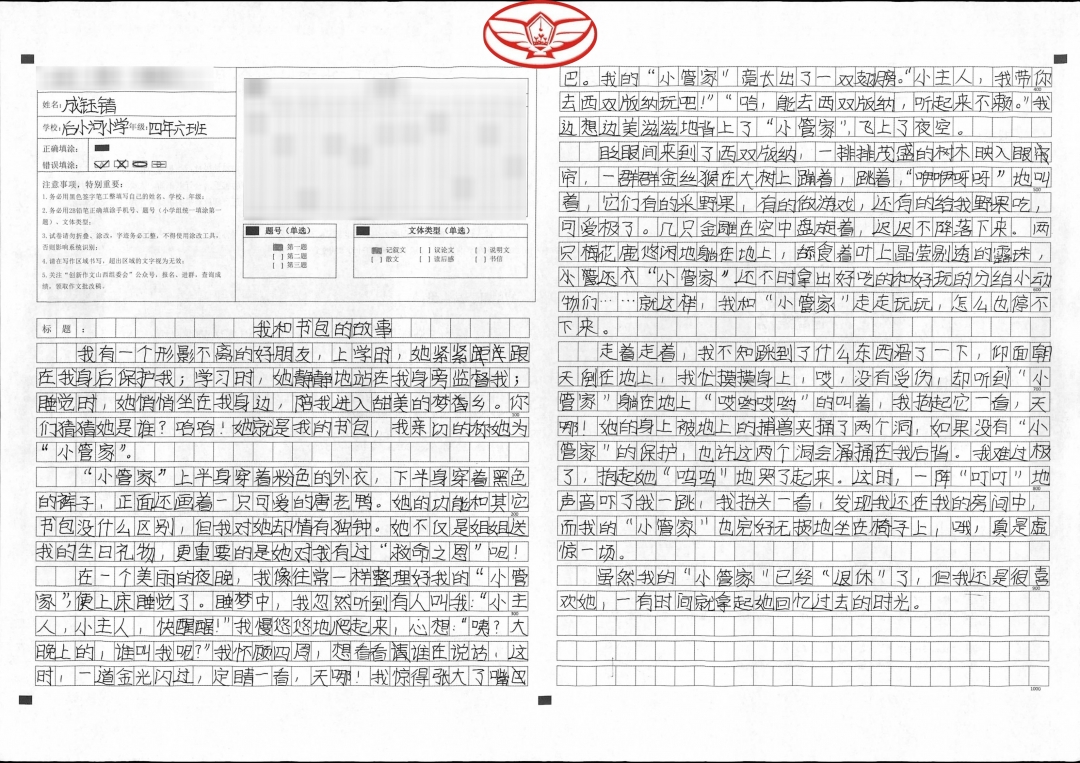 姓名：成钰锖
学校：后小河小学 年级：四年六班
正确填涂：
错误填涂：
注意事项，特别重要：
1.务必用黑色签字笔工整填写自己的姓名、学校、年级；
2.务必用2B铅笔正确填涂手机号、题号（小学组统一填涂第一
题）、文体类型；
3.试卷请勿折叠、涂改，字迹务必工整，不得使用涂改工具，
否则影响系统识别；
4.请在写作区域书写，超出区域的文字视为无效；
5.关注“创新作文山西组委会”公众号，报名、进群、查询成
绩，领取作文批改稿。
题号（单选）
第一题
[ ] 第二题
[ ] 第三题
文体类型（单选）
记叙文 [ ] 议论文 [ ] 说明文
[ ] 散文 [ ] 读后感 [ ] 书信
标题：我和书包的故事
我有一个形影不离的好朋友，上学时，她紧紧跟
在我身后保护我；学习时，她静静地站在我身旁监督我；
睡觉时，她悄悄坐在我身边，陪我进入甜美的梦乡。你
们猜猜她是谁？哈哈！她就是我的书包，我亲切的称她为
“小管家”。
“小管家”上半身穿着粉色的外衣，下半身穿着黑色
的裤子，正面还画着一只可爱的唐老鸭。她的功能和其它
书包没什么区别，但我对她却情有独钟。她不仅是姐姐送
我的生日礼物，更重要的是她对我有过“救命之恩”呢！
在一个美丽的夜晚，我像往常一样整理好我的“小管
家”，便上床睡觉了。睡梦中，我忽然听到有人叫我：“小主
人，小主人，快醒醒！”我慢悠悠地爬起来，心想：“咦？大
晚上的，谁叫我呢？”我怀顾四周，想看看清谁在说话，这
时，一道金光闪过，定睛一看，天哪！我惊得张大了嘴
巴。我的“小管家”竟长出了一双翅膀。“小主人，我带你
去西双版纳玩吧！”“哈，能去西双版纳，听起来不赖。”我
边想边美滋滋地背上了“小管家”，飞上了夜空。
眨眼间来到了西双版纳，一排排茂盛的树木映入眼帘
，一群群金丝猴在大树上蹦着，跳着，“咿咿呀呀”地叫
着，它们有的采野果，有的做游戏，还有的给我野果吃，
可爱极了。几只金雕在空中盘旋着，迟迟不降落下来。两
只梅花鹿悠闲地躺在地上，舔食着叶上晶莹剔透的露珠，
“小管家”还不时拿出好吃的和好玩的分给小动
物们……就这样，我和“小管家”走走玩玩，怎么也停不
下来。
走着走着，我不知跳到了什么东西滑了一下，仰面朝
天倒在地上，我忙摸摸身上，哎，没有受伤，却听到“小
管家”躺在地上“哎哟哎哟”的叫着，我抱起它一看，天
哪！她的身上被地上的捕兽夹捅了两个洞，如果没有“小
管家”的保护，也许这两个洞会涌捅在我后背。我难过极
了，抱起她“呜呜”地哭了起来。这时，一阵“叮叮”地
声音吓了我一跳，我抬头一看，发现我还在我的房间中，
而我的“小管家”也完好无损地坐在椅子上，哦，真是虚
惊一场。
虽然我的“小管家”已经“退休”了，但我还是很喜
欢她，一有时间就拿起她回忆过去的时光。